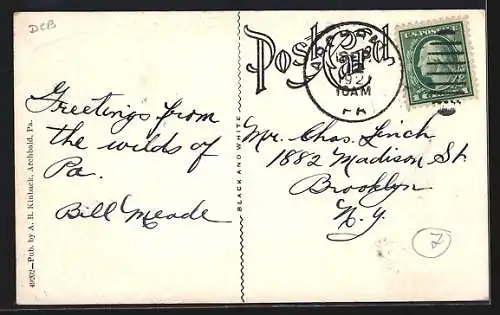 DCB
Post Card
192
10AM
PA
U.S. POSTAGE
Greetings from
the wilds of
Pa.
Bill Meade
Mr. Chas. Linch
1882 Madison St
Brooklyn
N. Y.
2
BLACK AND WHITE
49202—Pub. by A. R. Kinback, Archbald, Pa.